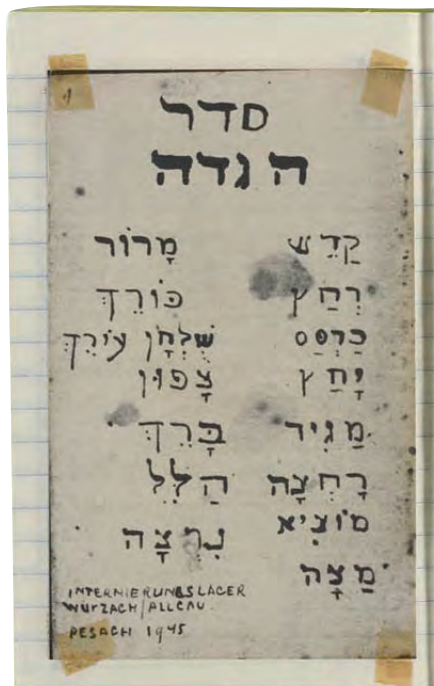 סדר
הגדה
קַדֵשׁ
רְחַץ
כַּרְפַּס
יָחַץ
מַגִּיד
רָחְצָה
מוֹצִיא
מַצָה
מָרוֹר
כּוֹרֵךְ
שֻׁלְחָן עוֹרֵךְ
צָפוּן
בָּרֵךְ
הַלֵּל
נִרְצָה
INTERNIERUNGSLAGER
WURZACH/ALLGÄU.
PESACH 1945